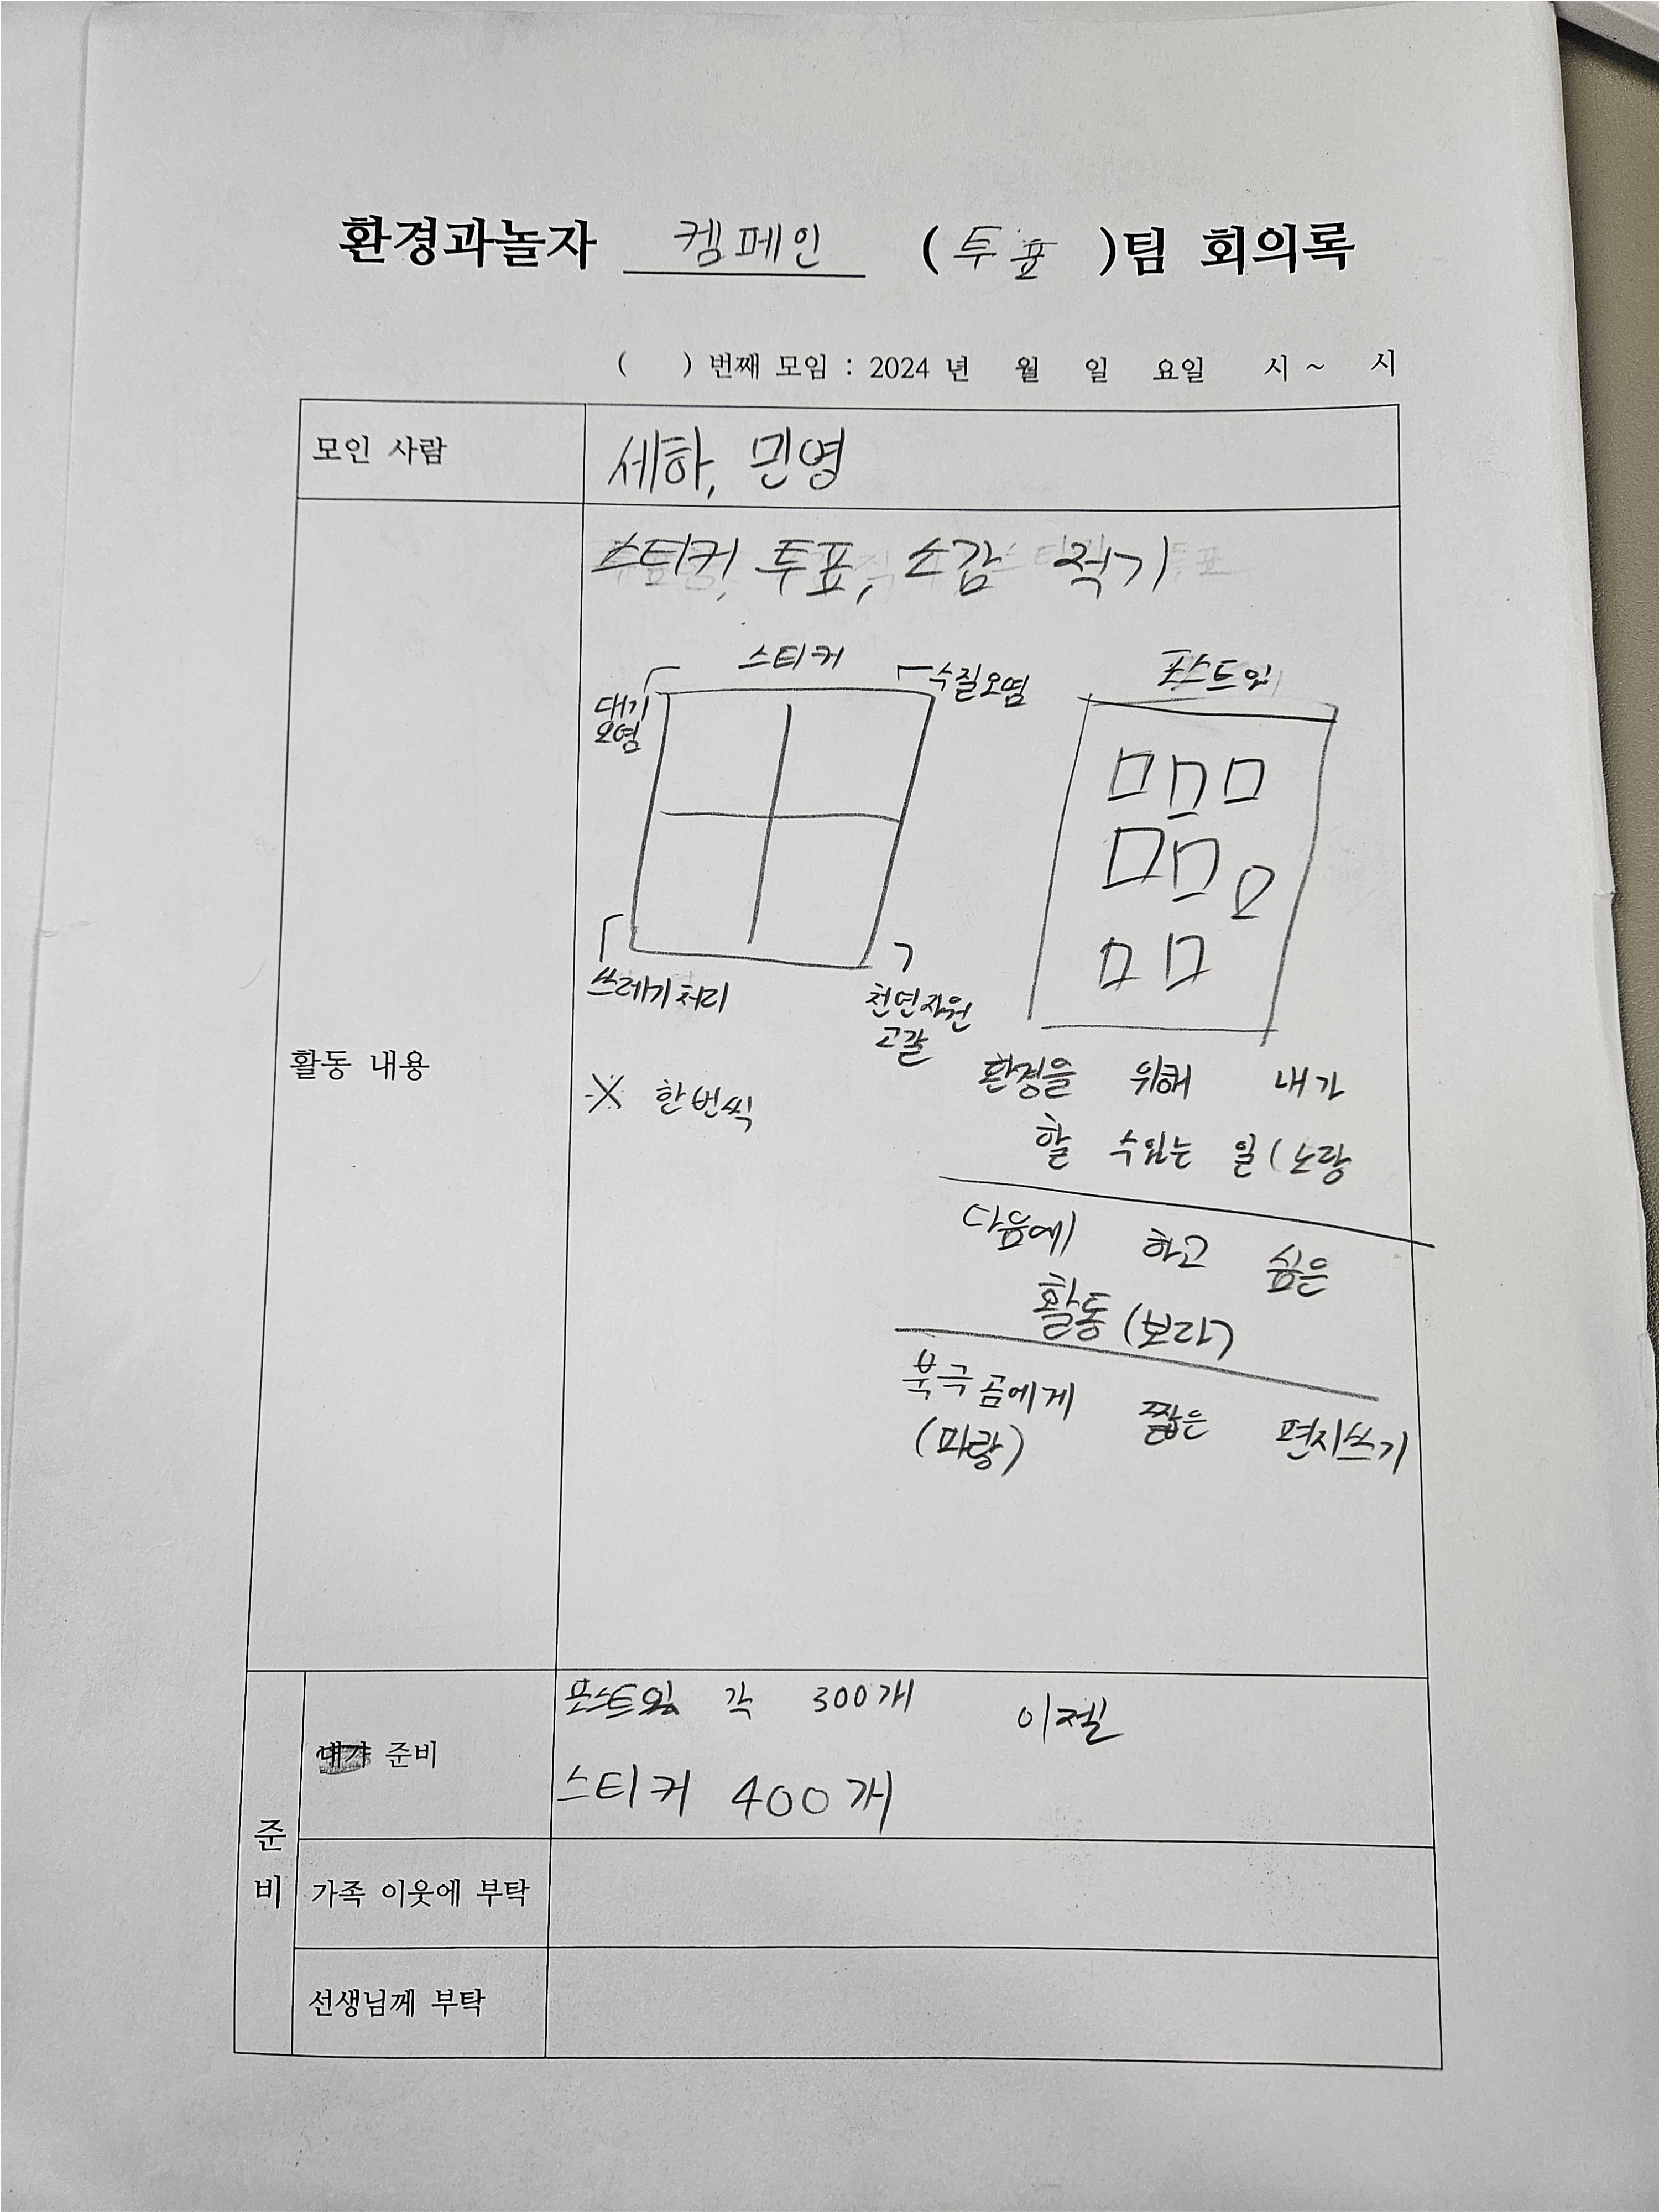 환경과놀자 켐페인 (투표)팀 회의록
( ) 번째 모임 : 2024 년 월 일 요일 시 ~ 시
모인 사람
세하, 민영
활동 내용
스티커 투표, 소감 적기
스티커
대기
오염
수질오염
쓰레기처리
천연자원
고갈
※ 한번씩
포스트잇
환경을 위해 내가
할 수있는 일(노랑
다음에 하고 싶은
활동 (보라)
북극곰에게 짧은 편지쓰기
(파랑)
준비
내가 준비
포스트잇 각 300개 이젤
스티커 400개
가족 이웃에 부탁
선생님께 부탁